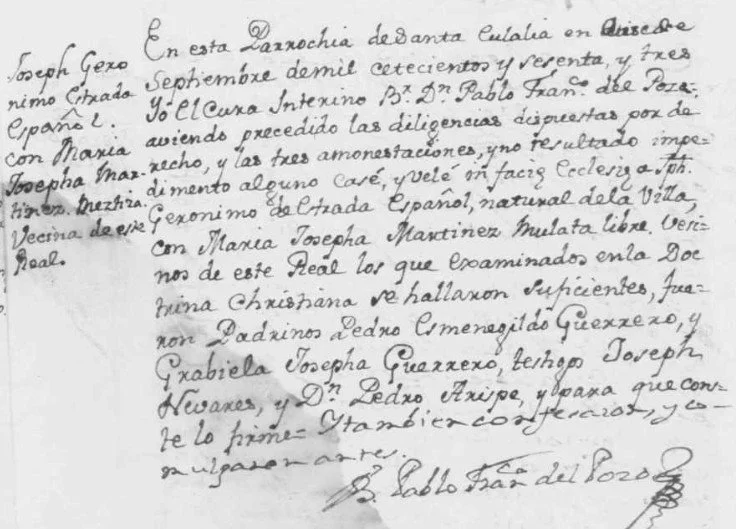 Joseph Gero
nimo Estrada
Español.
con Maria
Josepha Mar-
tinez. Meztiza.
Vecina de este
Real.
En esta Parrochia de Santa Eulalia en de
Septiembre de mil cetecientos y sesenta, y tres
Yo El Cura Interino Br. Dn. Pablo Franco. del Pozo,
aviendo precedido las diligencias dispuestas por de
recho, y las tres amonestaciones, y no resultado impe-
dimento alguno casé, y velé in facie Ecclesiæ Jph.
Geronimo de Estrada Español, natural de la Villa,
con Maria Josepha Martinez Mulata libre. Vesi-
nos de este Real los que examinados en la Doc
trina Christiana se hallaron suficientes, fue-
ron Padrinos Pedro Esmenegildo Guerrero, y
Grabiela Josepha Guerrero, testigos Joseph
Nevares, y Dn. Pedro Arispe, y para que cons-
te lo firme= Y tambien confesaron, y co-
mulgaron antes.
Br. Pablo Franco. del Pozo